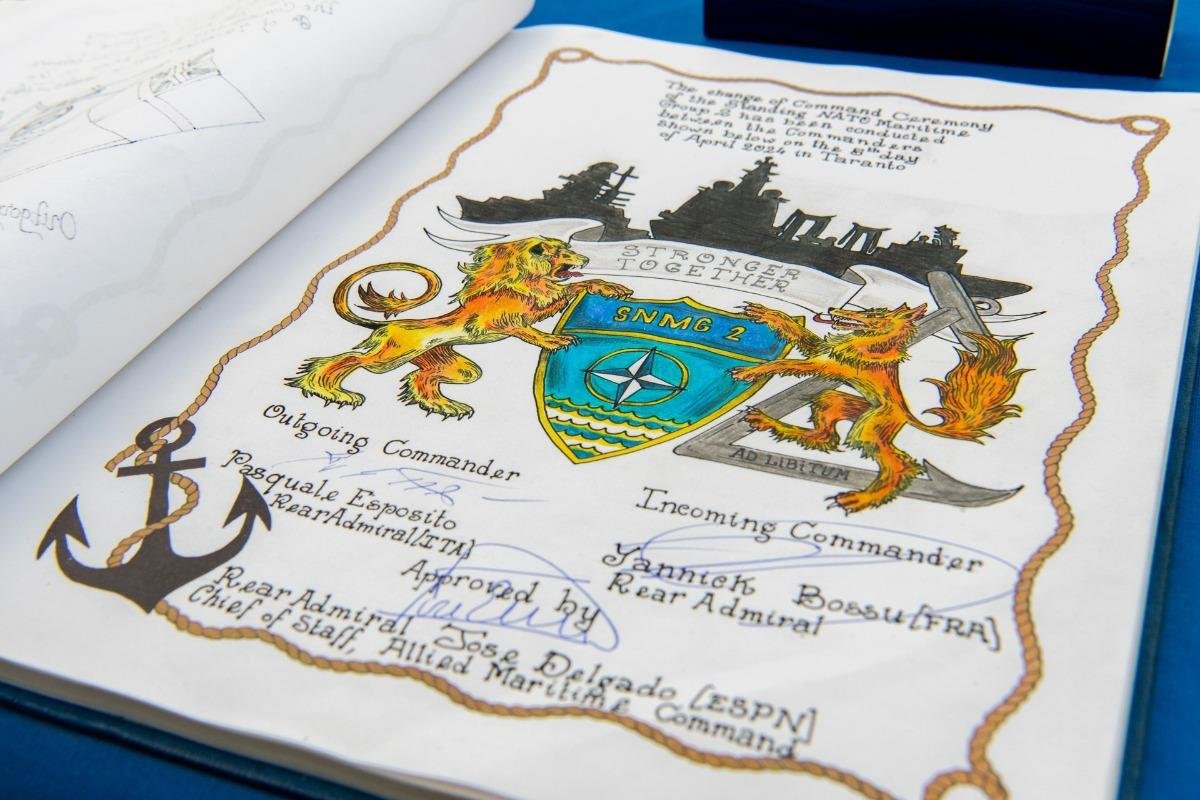 The change of Command Ceremony
of the Standing NATO Maritime
Group 2 has been conducted
between the Commanders
shown below on the 5th day
of April 2024 in Taranto
STRONGER
TOGETHER
SNMG 2
AD LIBITUM
Outgoing Commander
Pasquale Esposito
Rear Admiral [ITA]
Incoming Commander
Yannick Bossu [FRA]
Rear Admiral
Approved by
Rear Admiral Jose Delgado [ESPN]
Chief of Staff, Allied Maritime Command